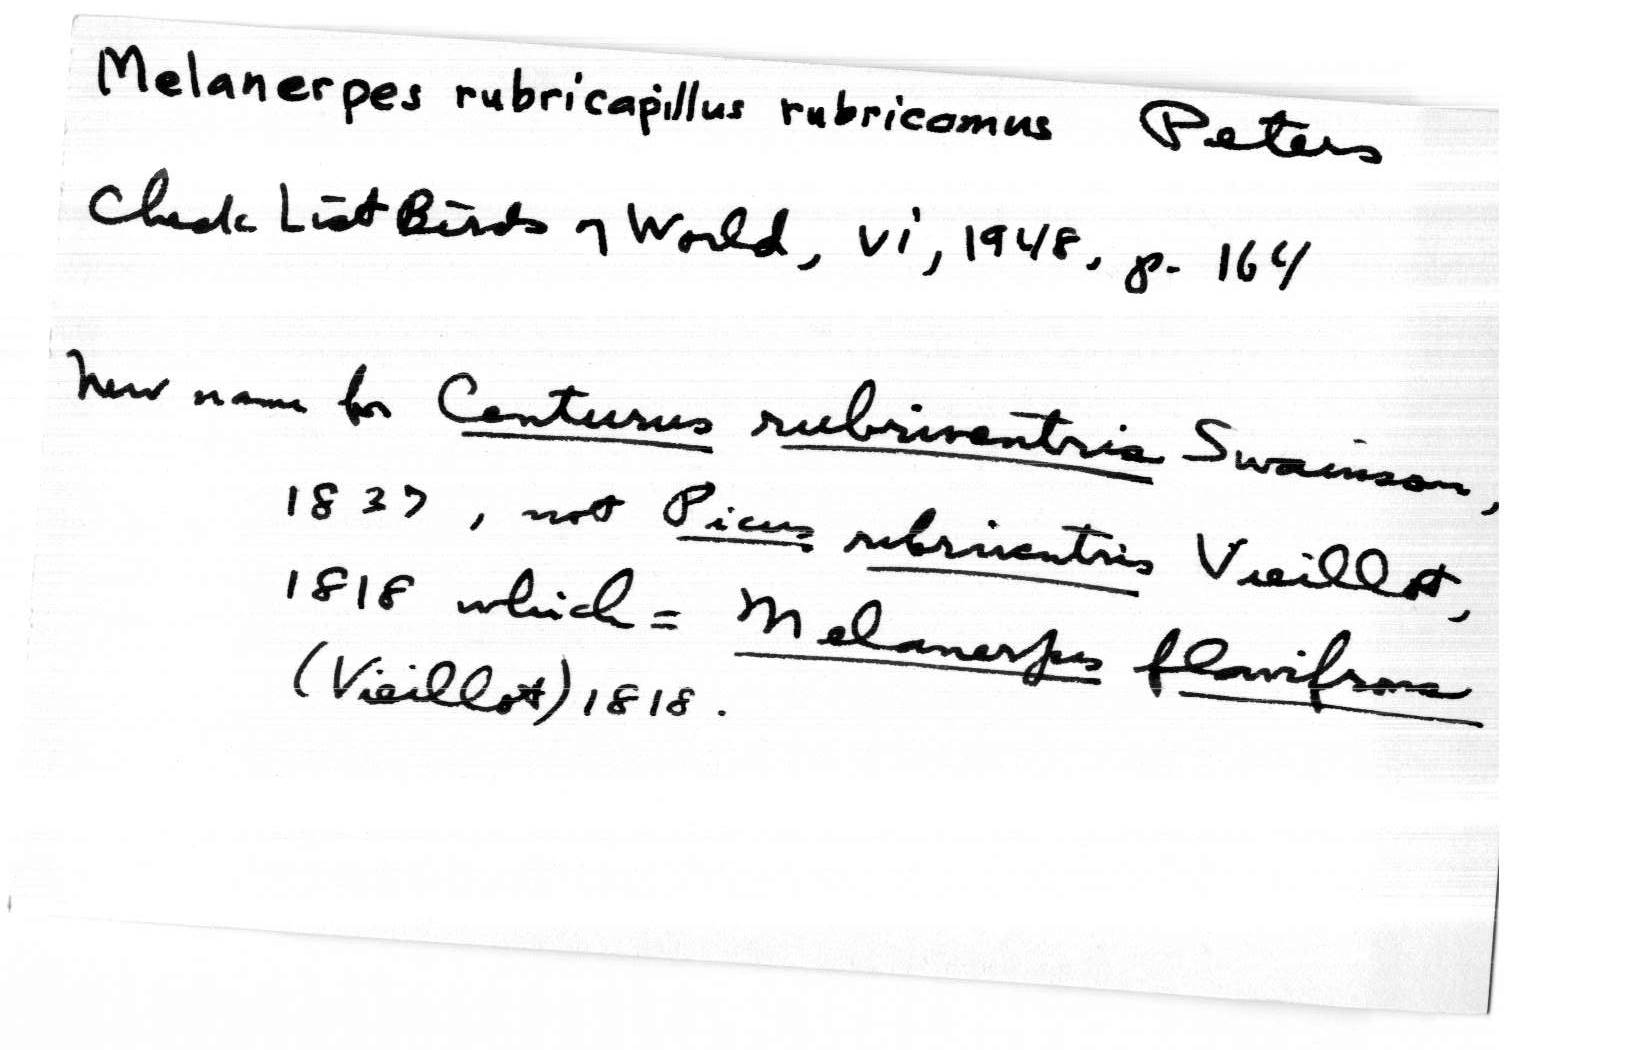 Melanerpes rubricapillus rubricomus Peters
Check List Birds of World, vi, 1948, p. 164
New name for Centurus rubriventris Swainson,
1837, not Picus rubriventris Vieillot,
1818 which = Melanerpes flavifrons
(Vieillot) 1818.